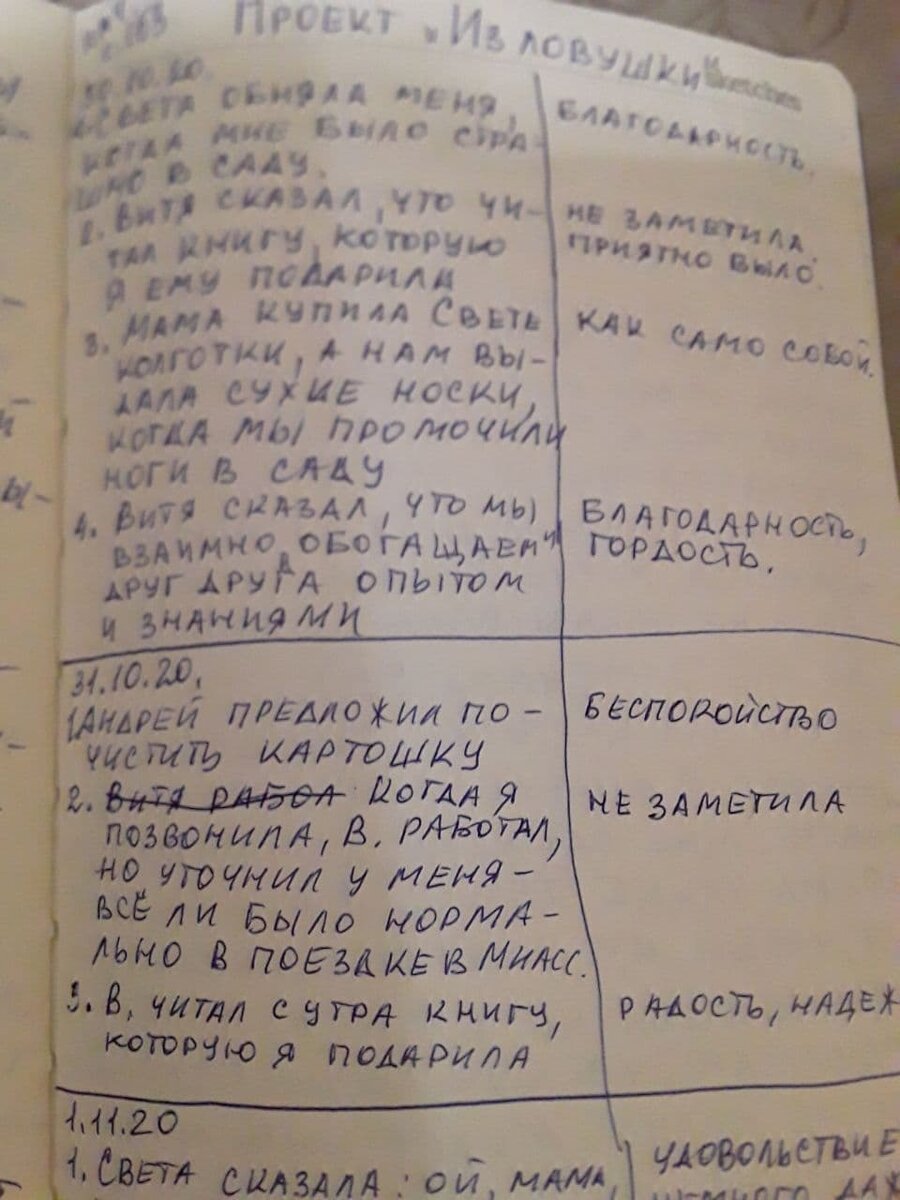 с.163 Проект „Из ловушки"
30.10.20.
1. Света обняла меня, Благодарность.
когда мне было стра-
шно в саду.
2. Витя сказал, что чи- Не заметила.
тал книгу, которую Приятно было.
я ему подарила
3. Мама купила Свете Как само собой.
колготки, а нам вы-
дала сухие носки,
когда мы промочили
ноги в саду
4. Витя сказал, что мы Благодарность,
взаимно „обогащаем" гордость.
друг друга опытом
и знаниями
31.10.20.
1 Андрей предложил по- Беспокойство
чистить картошку
2. Витя рабол Когда я Не заметила
позвонила, В. работал,
но уточнил у меня –
всё ли было норма-
льно в поездке в Миасс.
3. В. читал с утра книгу, Радость, надеж
которую я подарила
1.11.20
1. Света сказала: ой, мама, Удовольствие